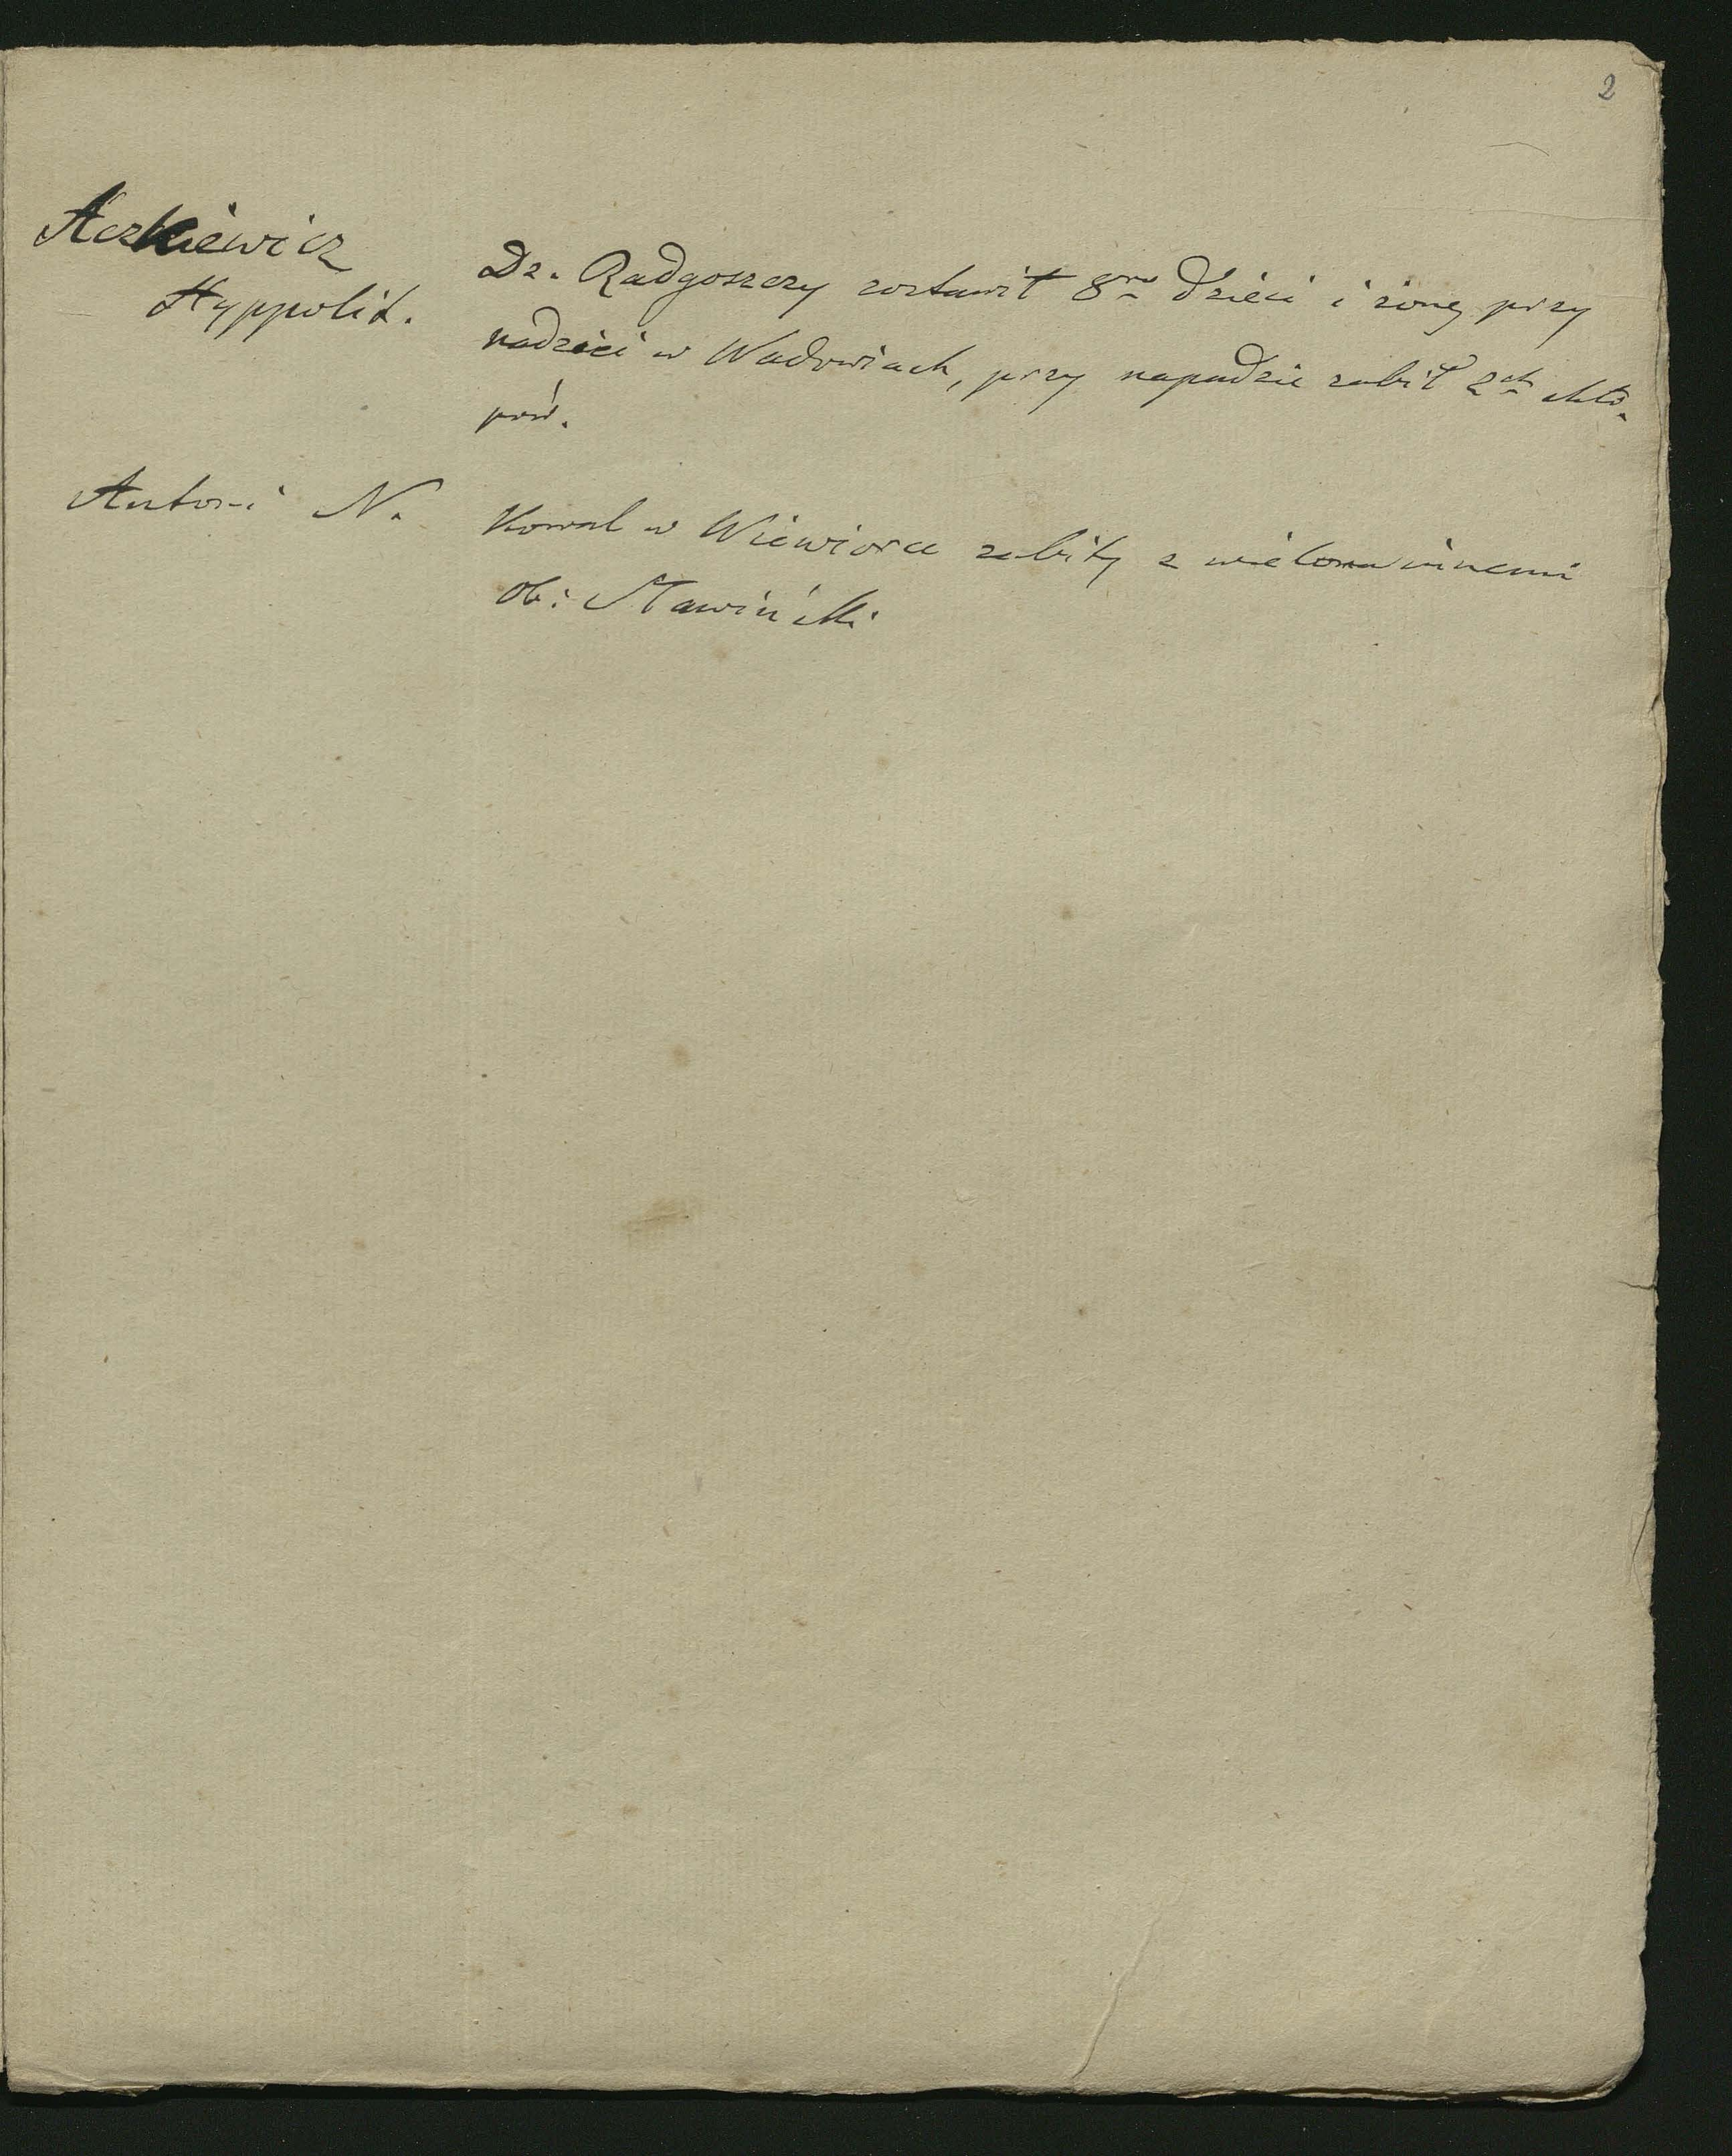 2
Aczkiewicz
Hyppolit.
Dz. Radgoszczy zostawił 8ro dzieci i żonę przy
nadzieci w Wadowiach, przy napadzie zabił 2ch chło-
pów.
Antoni N.
Kowal w Wiewiorce zabity z wieloma innemi
ob: Sławiński